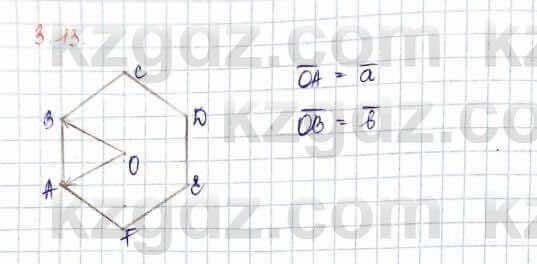 3.13.
C
B
D
O
A
E
F
OA = a
OB = b
kzgdz.com
kzgdz.com
kzgdz.com
kzgdz.com